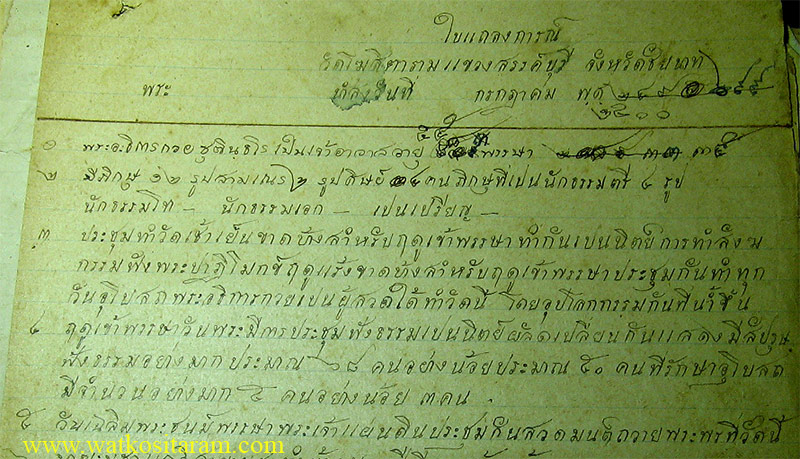 ใบแถลงการณ์
วัดโฆสิตาราม แขวงสรรค์บุรี จังหวัดชัยนาท
พระ วันที่ กรกฎาคม พ.ศ. ๒๕๐๐
๑ พระอธิการกวย ชุตินฺธโร เปนเจ้าอาวาส อายุ พรรษา ๓๕
๒ มีภิกษุ ๑๒ รูป สามเณร ๒ รูป ศิษย์ ๑๔ คน ภิกษุที่เปนนักธรรมตรี ๔ รูป
นักธรรมโท — นักธรรมเอก — เปนเปรียญ —
๓ ประชุมทำวัดเช้าเย็นขาดบ้างสำหรับฤดูเข้าพรรษาทำกันเปนนิตย์ การทำสังฆ
กรรมฟังพระปาฏิโมกข์ฤดูแร้งขาดบ้างสำหรับฤดูเข้าพรรษาประชุมกันทำทุก
วันอุโปสถพระอธิการกวยเปนผู้สวดได้ทำวัดนี้ โดยอุปโลกกรรมกันที่น้ำขึ้น
๔ ฤดูเข้าพรรษาวันพระมีการประชุมฟังธรรมเปนนิตย์ผลัดเปลี่ยนกันแสดง มีสัปรุษ
ฟังธรรมอย่างมากประมาณ ๖๘ คนอย่างน้อยประมาณ ๕๐ คน ที่รักษาอุโบสถ
มีจำนวนอย่างมาก ๕ คนอย่างน้อย ๓ คน
๕ วันเฉลิมพระชนม์พรรษาพระเจ้าแผ่นดินประชุมกันสวดมนต์ถวายพระพรที่วัดนี้
www.watkositaram.com